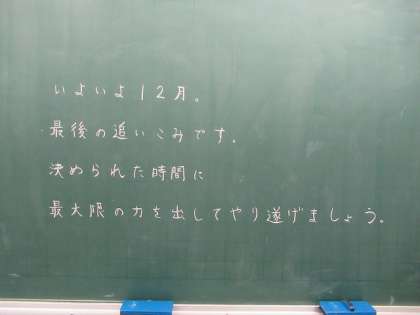 いよいよ12月。
最後の追いこみです。
決められた時間に
最大限の力を出してやり遂げましょう。